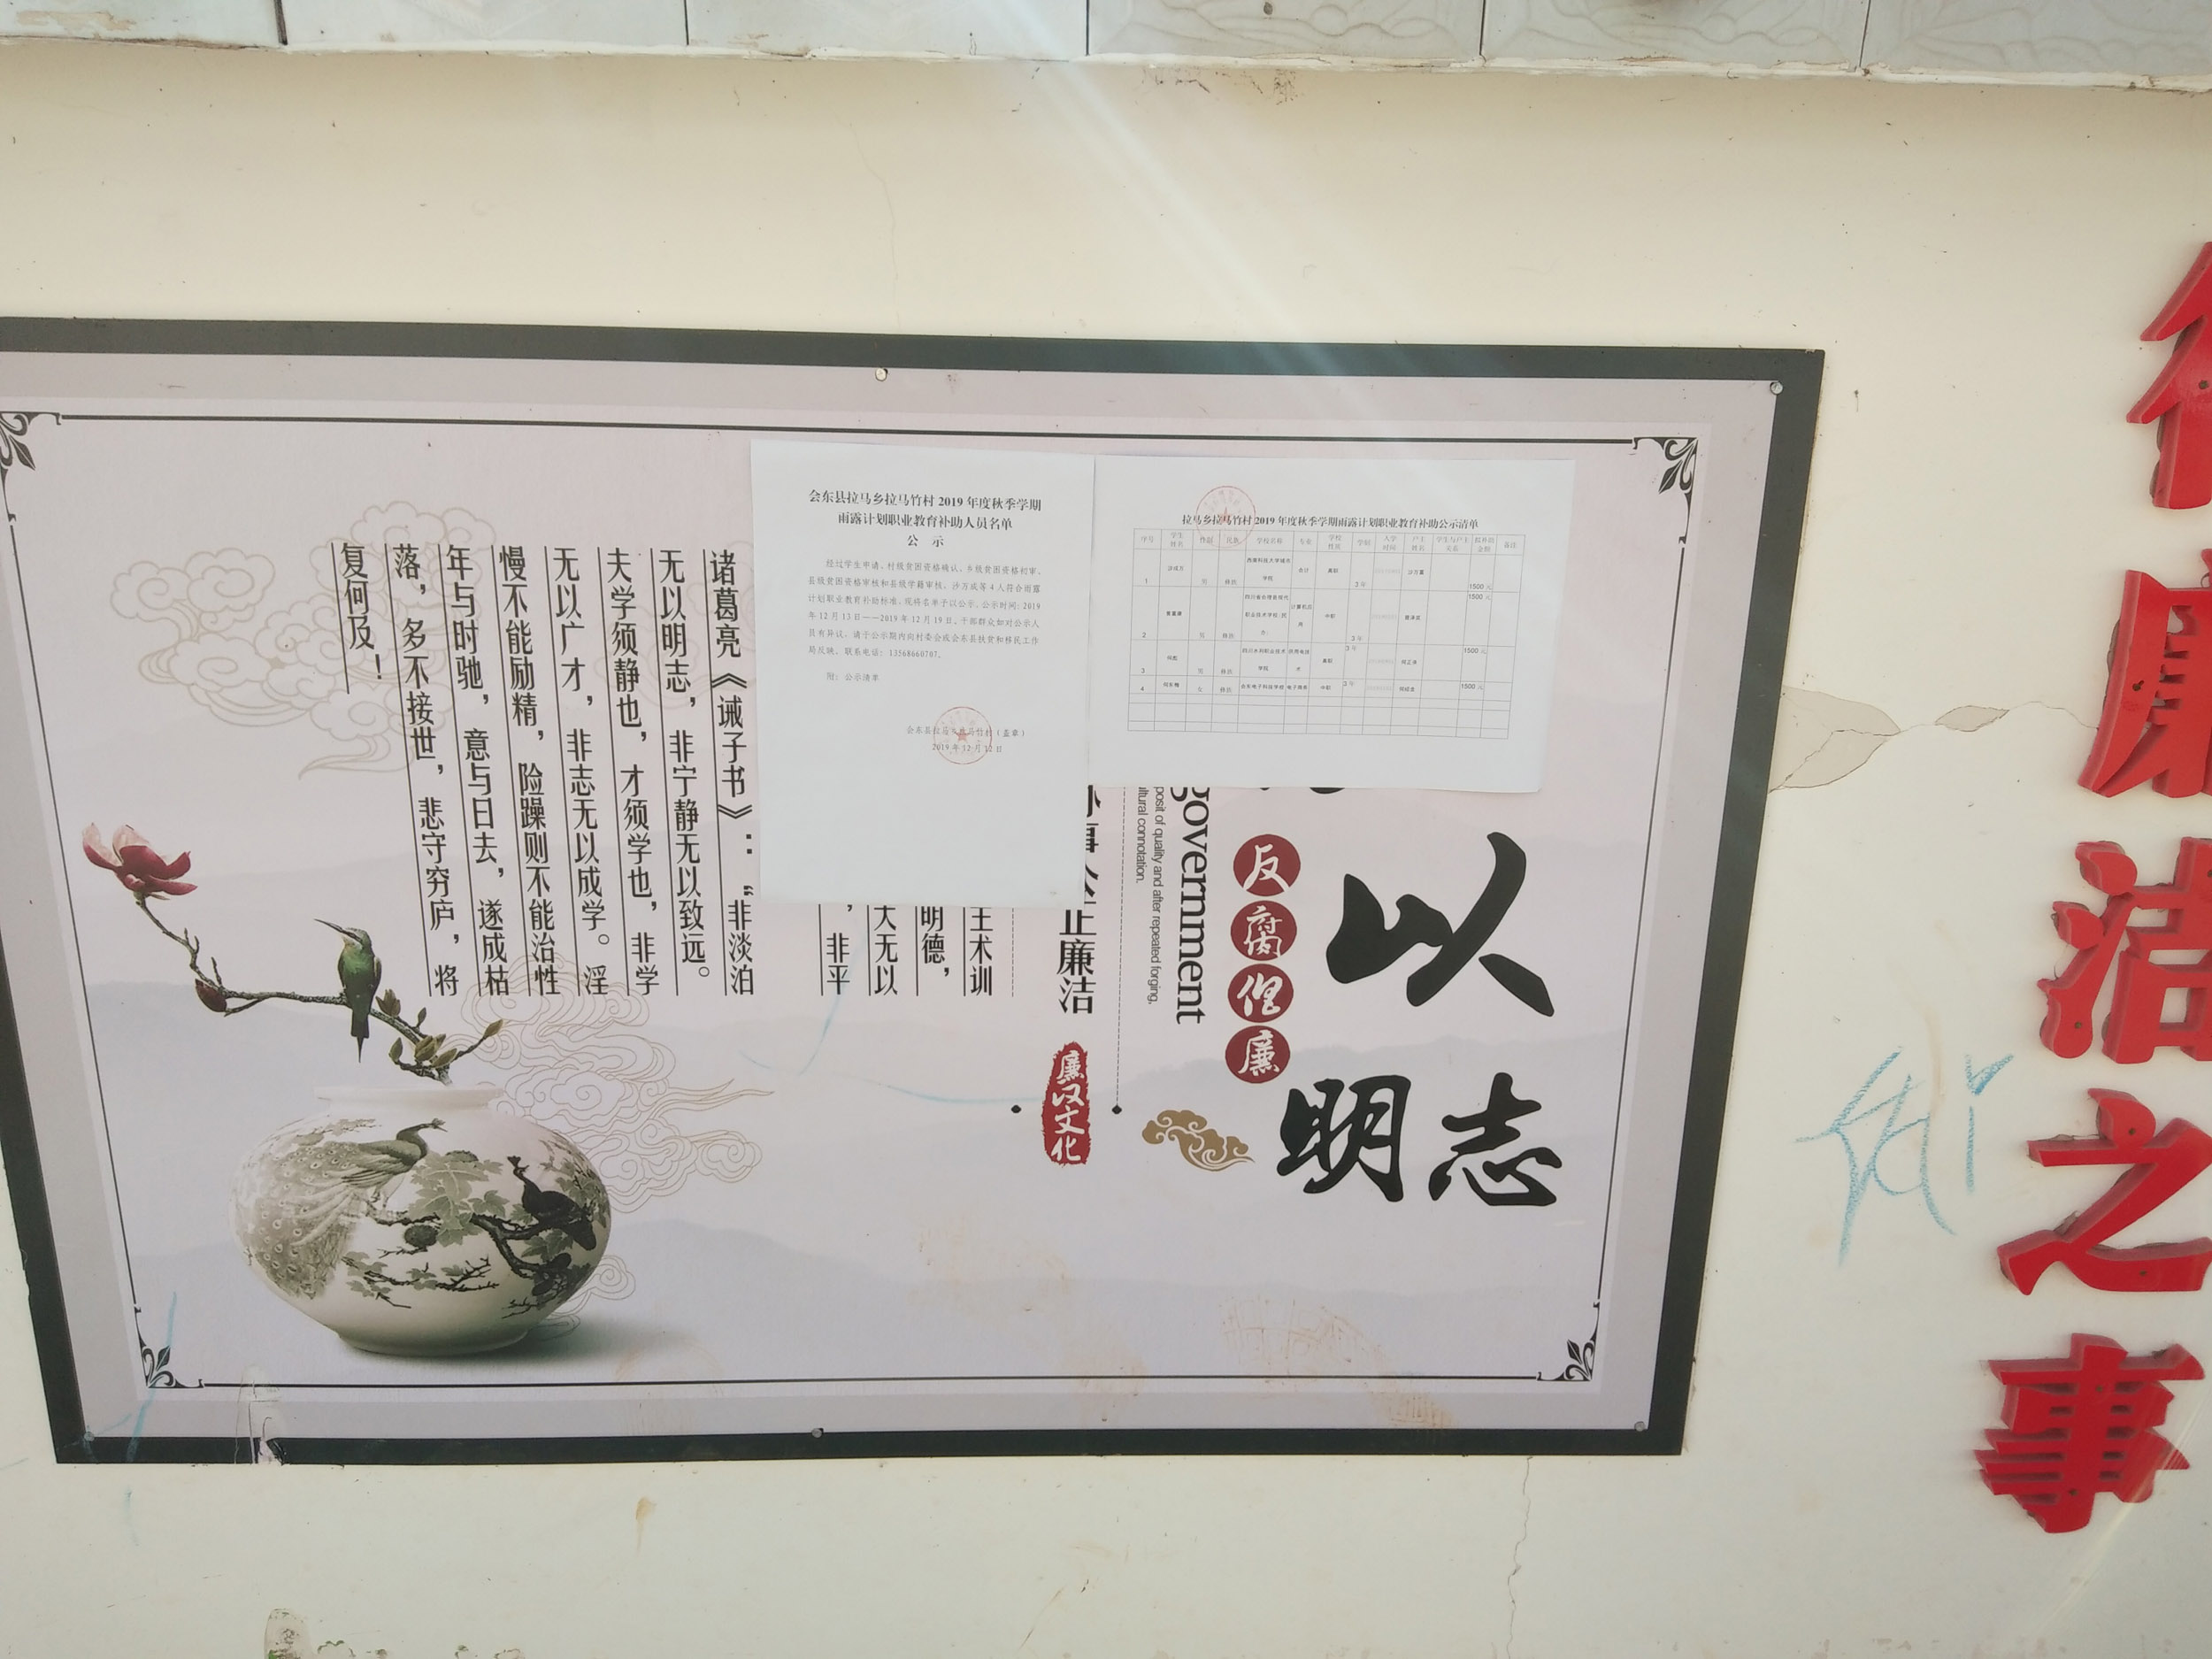 会东县拉马乡拉马竹村 2019 年度秋季学期
雨露计划职业教育补助人员名单
公 示
经过学生申请、村级贫困资格确认、乡级贫困资格初审、
县级贫困资格审核和县级学籍审核，沙万成等 4 人符合雨露
计划职业教育补助标准，现将名单予以公示。公示时间：2019
年 12 月 13 日——2019 年 12 月 19 日，干部群众如对公示人
员有异议，请于公示期内向村委会或会东县扶贫和移民工作
局反映。联系电话：13568660707。
附：公示清单
会东县拉马乡拉马竹村（盖章）
2019 年 12 月 12 日
拉马乡拉马竹村 2019 年度秋季学期雨露计划职业教育补助公示清单
序号 学生姓名 性别 民族 学校名称 专业 学校性质 学制 入学时间 户主姓名 学生与户主关系 拟补助金额 备注
1 男 西南科技大学城市学院 会计 高职 3 年 1500 元
2 男 中职 3 年 1500 元
3 男 四川水利职业技术学院 供用电技术 高职 3 年 1500 元
4 女 会东电子科技学校 电子商务 中职 3 年 1500 元
以
明志
反腐倡廉
government
posit of quality and after repeated forging,
ltural connotation.
公正廉洁
廉汉文化
王术训
明德，
大无以
，非平
诸葛亮《诫子书》：“非淡泊
无以明志，非宁静无以致远。
夫学须静也，才须学也，非学
无以广才，非志无以成学。淫
慢不能励精，险躁则不能治性
年与时驰，意与日去，遂成枯
落，多不接世，悲守穷庐，将
复何及！
廉洁之事